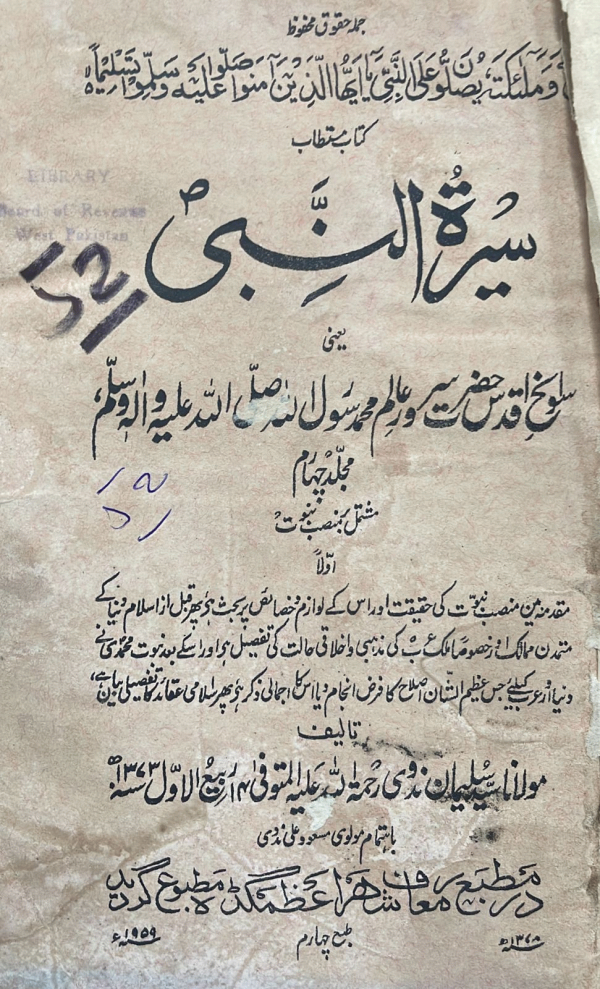 جملہ حقوق محفوظ
وَمَلٰٓئِکَتَہٗ یُصَلُّوْنَ عَلَی النَّبِیِّ یٰٓاَیُّھَا الَّذِیْنَ اٰمَنُوْا صَلُّوْا عَلَیْہِ وَسَلِّمُوْا تَسْلِیْمًا
کتاب مستطاب
LIBRARY
Board of Revenue
West Pakistan
سیرۃ النَّبی ؐ
52
یعنی
سوانح اقدس حضرت سرور عالم محمد رسول اللہ صلّی اللہ علیہ واٰلہٖ وسلّم،
مجلّد چہارم
مشتمل بر منصب نبوت
اوّلاً
مقدمہ میں منصب نبوّت کی حقیقت اور اس کے لوازم و خصائص پر بحث ہی پھر قبل از اسلام دنیا کے
متمدن ممالک اور خصوصًا ملک عرب کی مذہبی و اخلاقی حالت کی تفصیل ہی اور اسکے بعد نبوت محمدی نے
دنیا اور عرب کیلئے جس عظیم الشّان اصلاح کا فرض انجام دیا اس کا اجمالی ذکر ہی پھر اسلامی عقائد کا تفصیلی بیان ہے،
تالیف
مولانا سید سلیمان ندوی رحمۃ اللہ علیہ المتوفیٰ ۱۴ ربیع الاوّل ۱۳۷۳ھ
باہتمام مولوی مسعود علی ندوی
در مطبع معارف شہر اعظم گڈہ مطبوع گردید
۱۳۷۸ھ طبع چہارم ۱۹۵۹ء